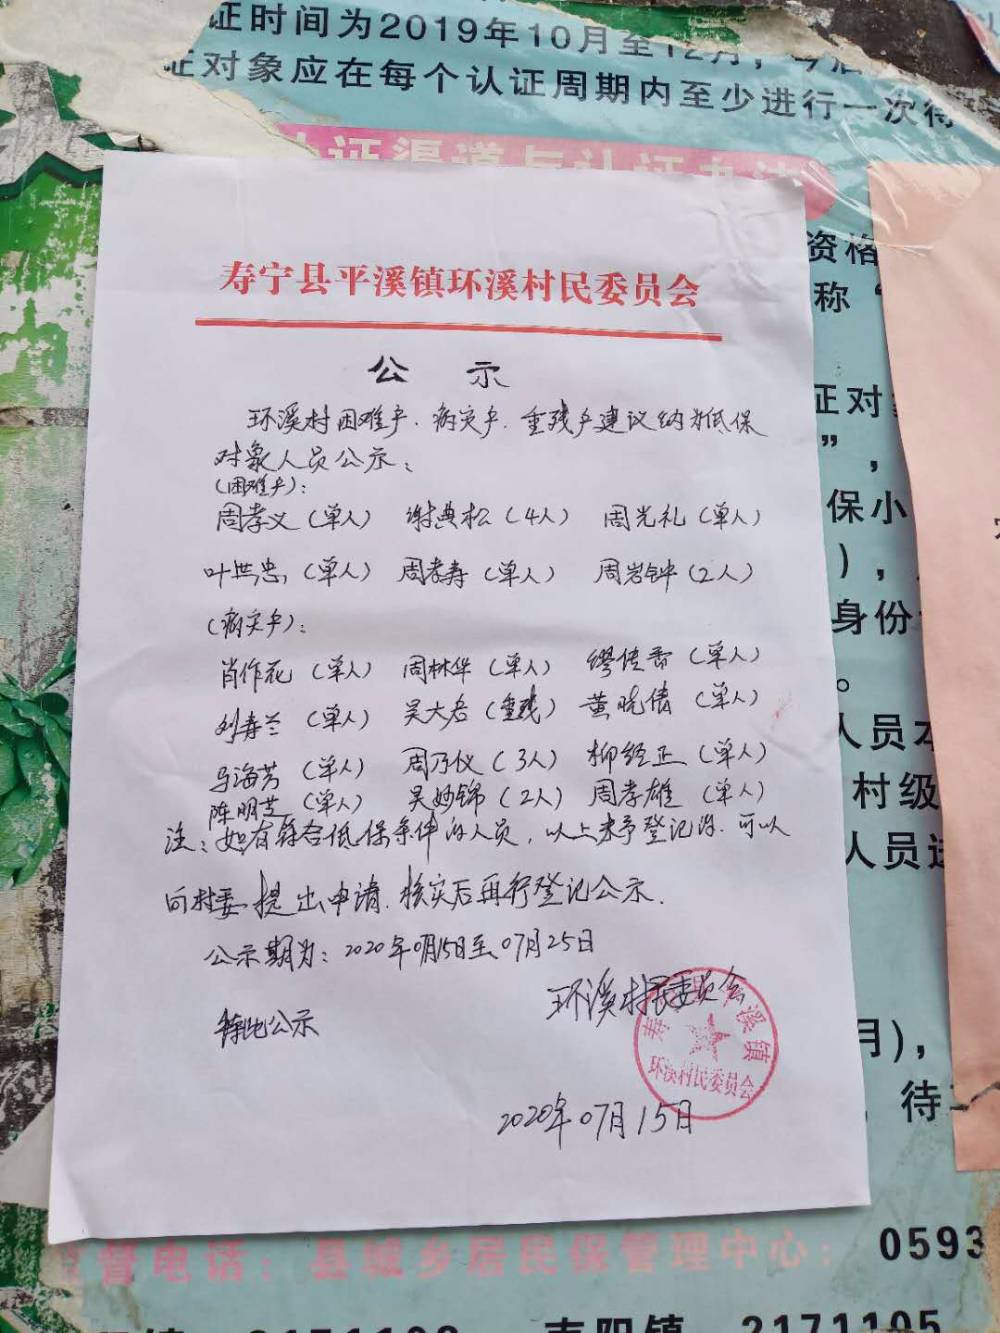 证时间为2019年10月至12月，今后
证对象应在每个认证周期内至少进行一次待
证渠道与认证办法
资格
称“
证对
”，
保小
)，
身份
。
人员本
村级
人员进
月)，
，待
寿宁县平溪镇环溪村民委员会
公 示
环溪村困难户、病灾户、重残户建议纳为低保
对象人员公示：
(困难户)：
周孝义（单人） 谢典松（4人） 周光礼（单人）
叶世忠（单人） 周孝寿（单人） 周岩钟（2人）
(病灾户)：
肖作花（单人） 周林华（单人） 缪传香（单人）
刘寿兰（单人） 吴大君（重残） 黄晓倩（单人）
马海芳（单人） 周乃仪（3人） 柳经正（单人）
陈明芝（单人） 吴妙锦（2人） 周孝雄（单人）
注：如有符合低保条件的人员，以上未予登记的、可以
向村委提出申请、核实后再行登记公示.
公示期为：2020年07月15日至07月25日
环溪村民委员会
特此公示
寿宁县平溪镇
环溪村民委员会
2020年07月15日
监督电话：县城乡居民保管理中心：0593
寿阳镇 2171105